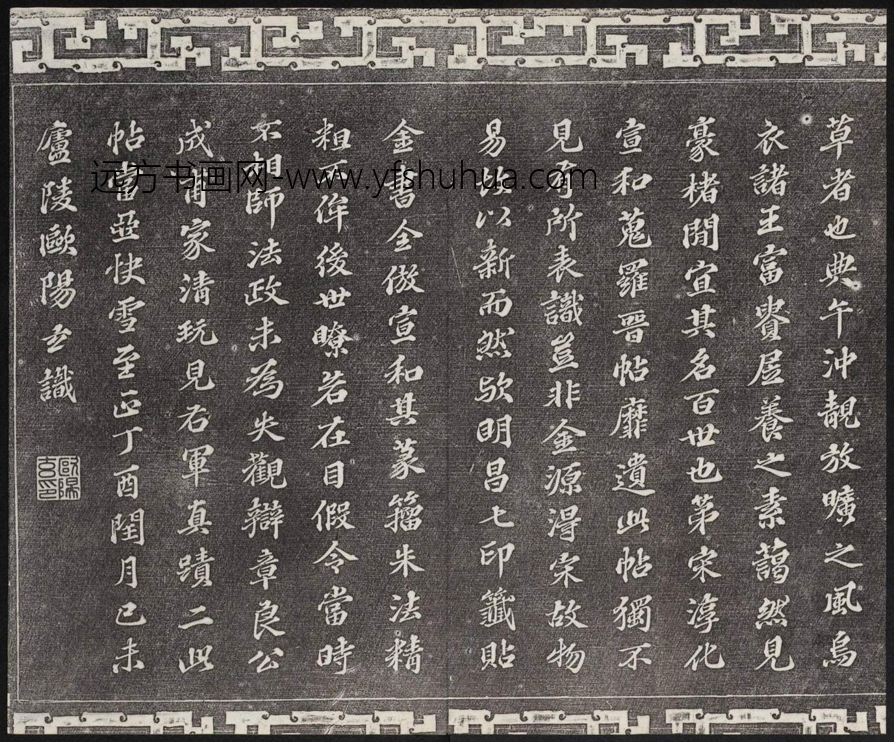 草者也典午沖靚放曠之風烏
衣諸王富貴居養之素藹然見
豪楮閒宜其名百世也第宋淳化
宣和蒐羅晉帖靡遺此帖獨不
見于所表識豈非金源得宋故物
易以新而然歟明昌七印籤貼
金書全倣宣和其篆籀朱法精
粗不侔後世瞭若在目假令當時
不問師法政未為失觀辯章良公
成甫家清玩見右軍真蹟二此
帖當亞快雪至正丁酉閏月己未
廬陵歐陽玄識
歐陽玄印
远方书画网-www.yfshuhua.com